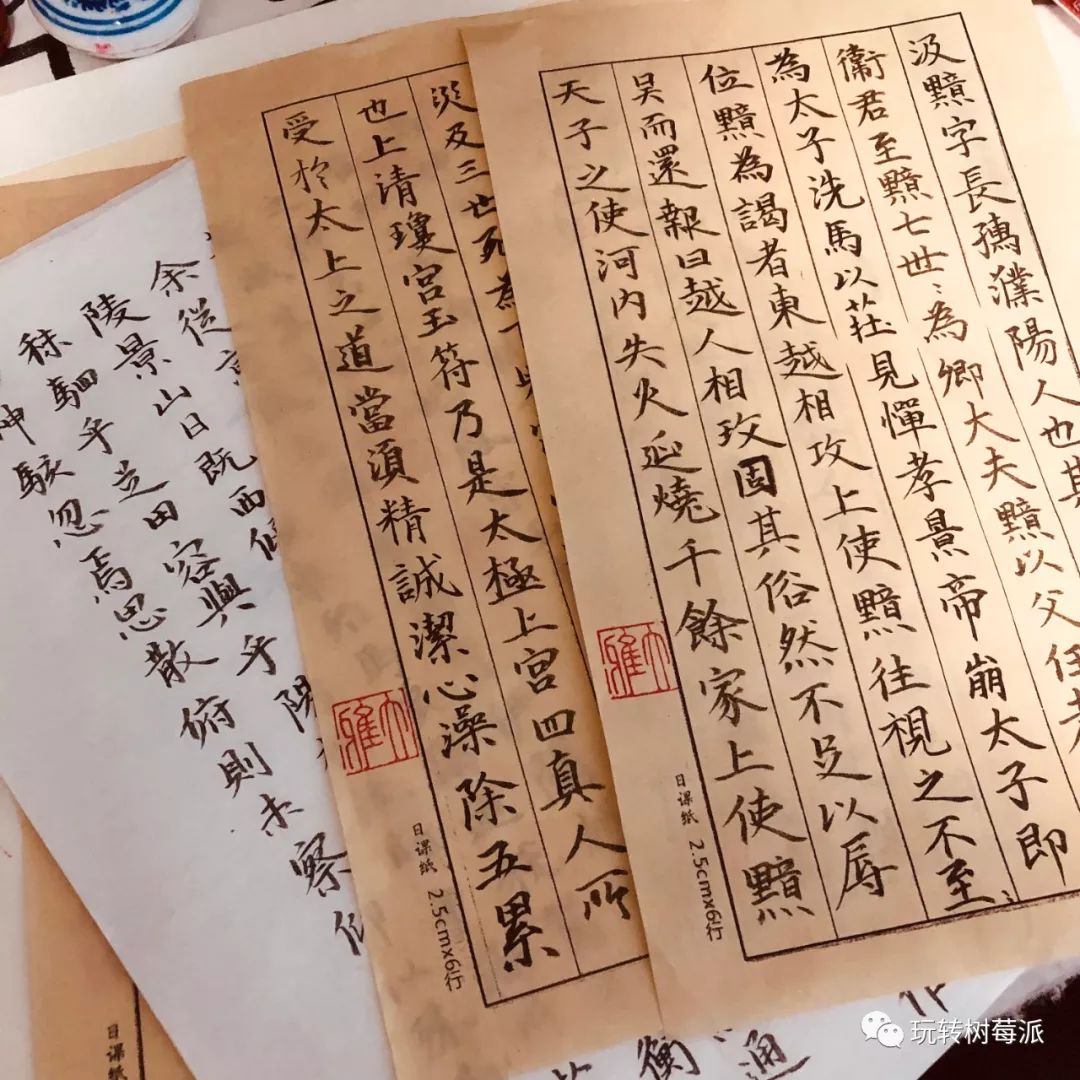 汲黯字長孺濮陽人也其
衞君至黯七世〻為卿大夫黯以父任
為太子洗馬以莊見憚孝景帝崩太子即
位黯為謁者東越相攻上使黯往視之不至
吴而還報曰越人相攻固其俗然不足以辱
天子之使河内失火延燒千餘家上使黯
大雅
日课纸 2.5cmx6行
災及三世死為下
也上清瓊宮玉符乃是太極上宫四真人所
受於太上之道當須精誠潔心澡除五累
大雅
日课纸 2.5cmx6行
余從京
陵景山日既西傾
秣駟乎芝田容與乎陽
神駭忽焉思散俯則未察仰
日课纸
作
通
衡
玩转树莓派